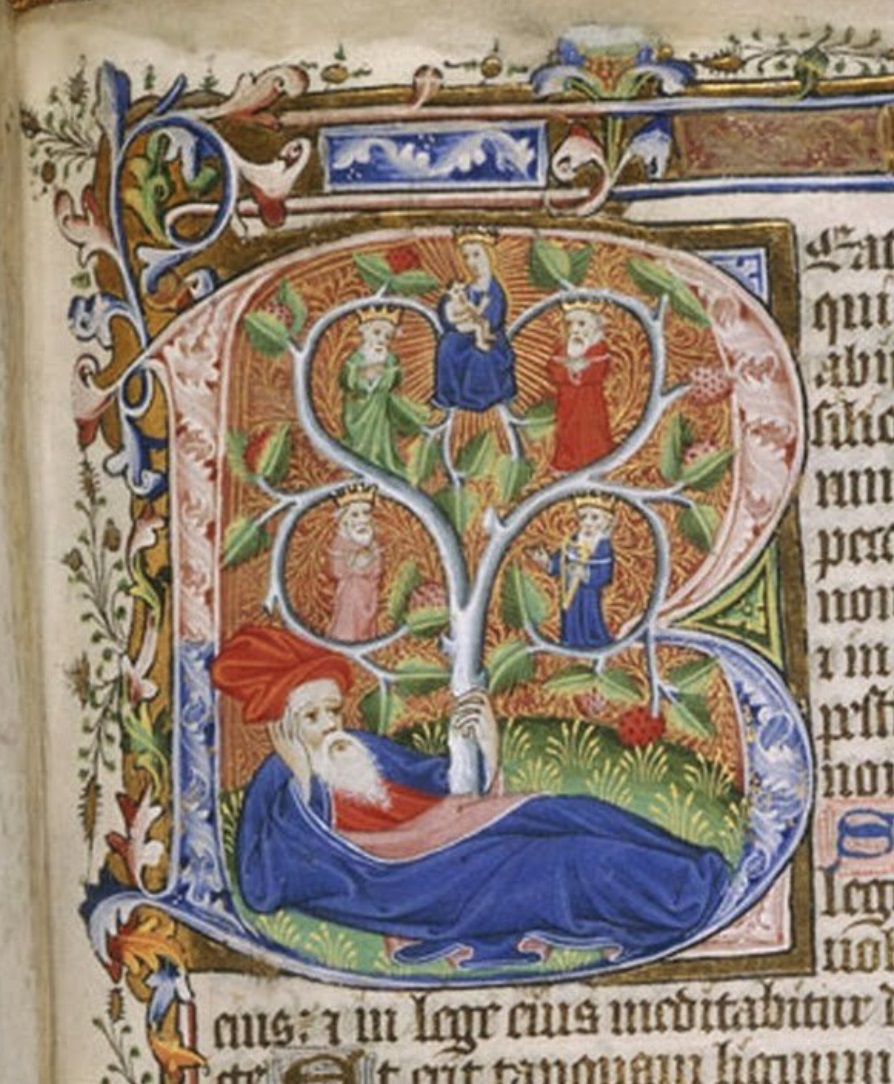 B
Eat
qui
abi
silio
rum
pecc
non
⁊ in
pest
non
S
lege
uol
eius: ⁊ in lege eius meditabitur
cte Et erit tanquam lignum